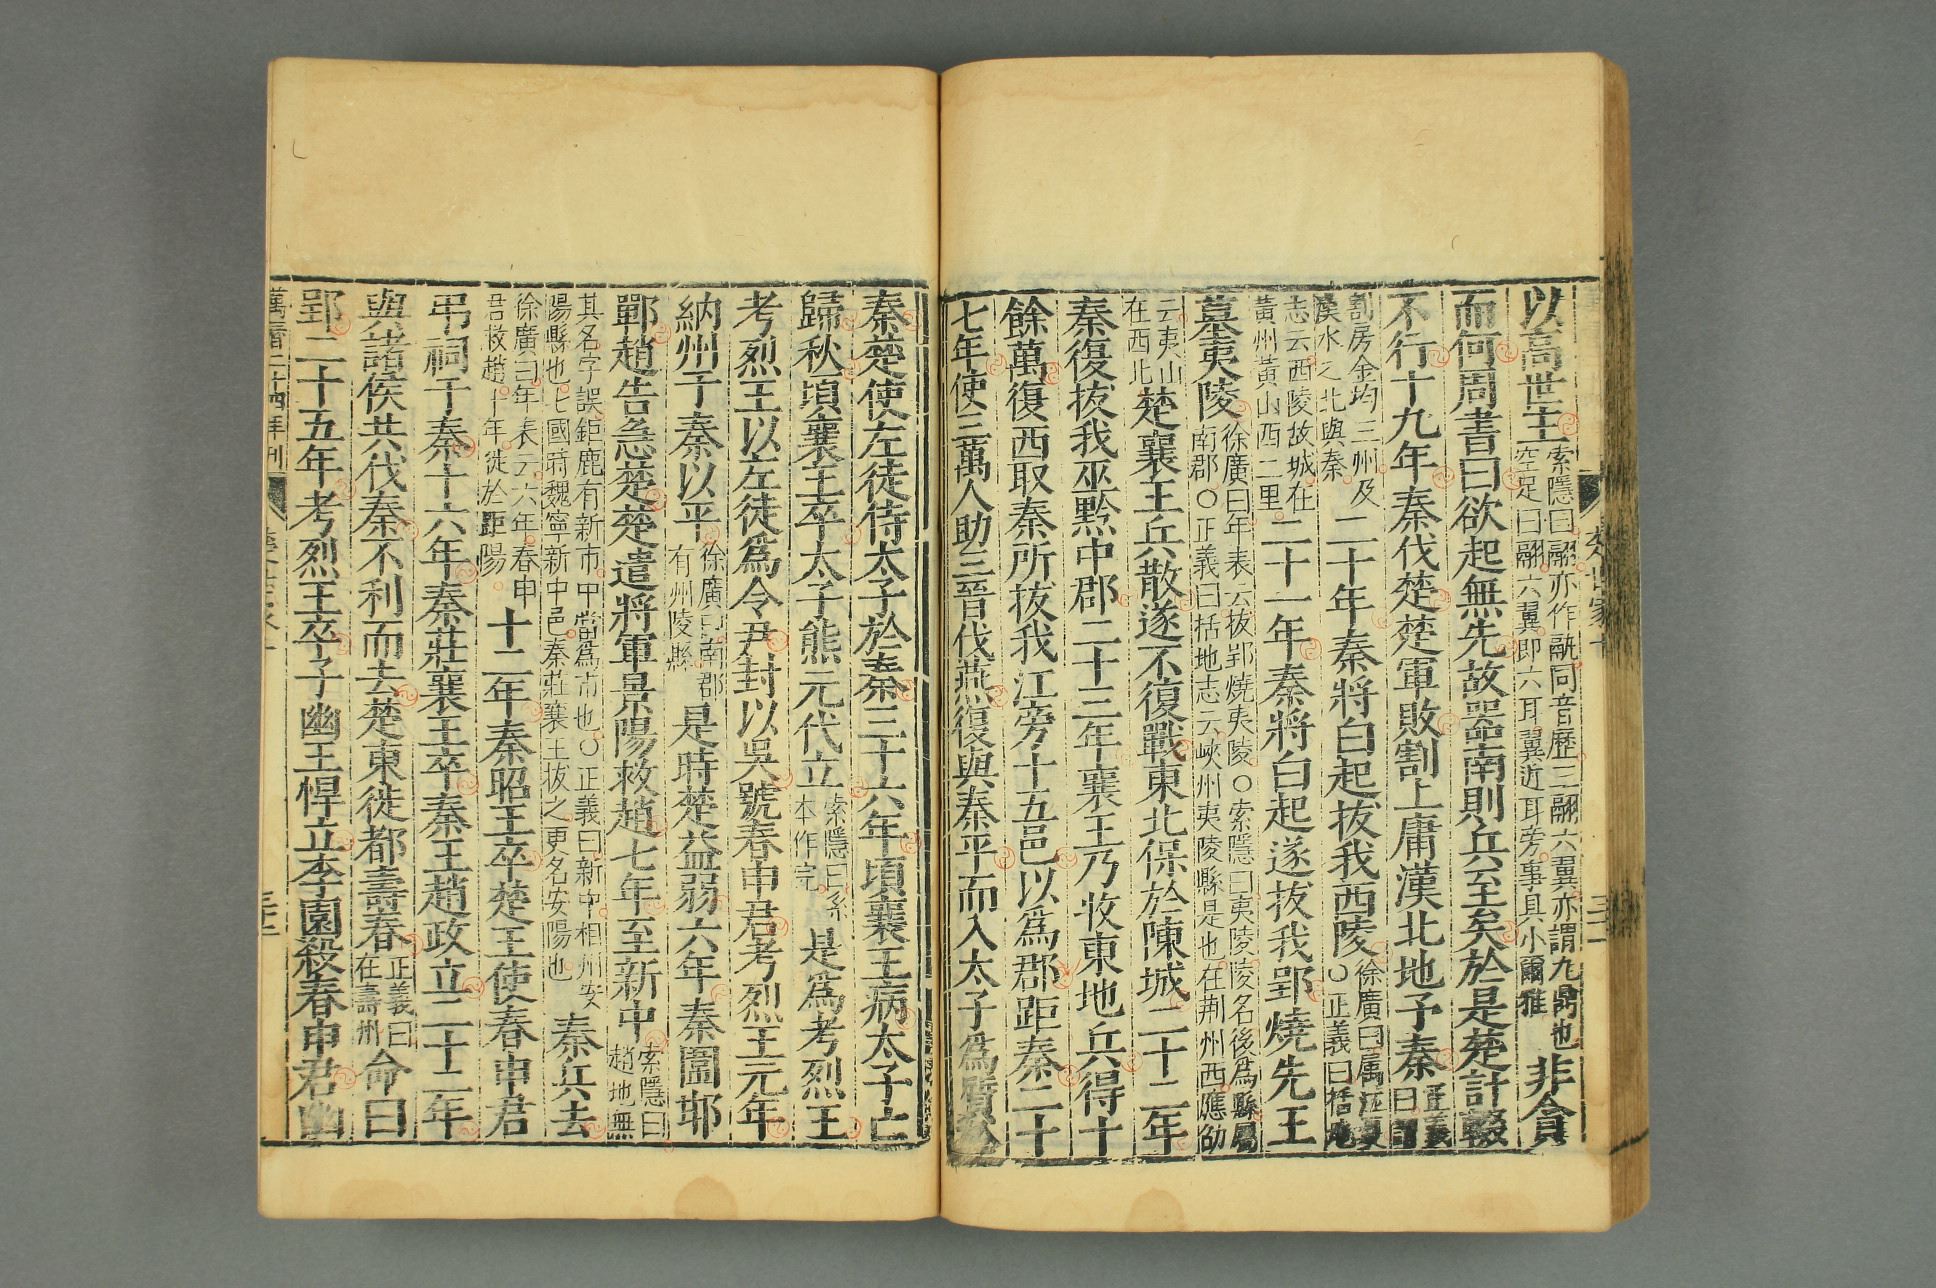 以高世主索隱曰翮亦作䰛同音歷三翮六翼亦謂九鼎也空足曰翮六翼即六耳翼近耳旁事具小爾雅非貪
而何周書曰欲起無先故器南則兵至矣於是楚計輟
不行十九年秦伐楚楚軍敗割上庸漢北地予秦正義曰謂
割房金均三州及漢水之北與秦二十年秦將白起拔我西陵徐廣曰屬江夏○正義曰括地
志云西陵故城在黃州黃山西二里二十一年秦將白起遂拔我郢燒先王
墓夷陵徐廣曰年表云拔郢燒夷陵○索隱曰夷陵陵名後爲縣屬南郡○正義曰括地志云峽州夷陵縣是也在荆州西應劭
云夷山在西北楚襄王兵散遂不復戰東北保於陳城二十二年
秦復拔我巫黔中郡二十三年襄王乃收東地兵得十
餘萬復西取秦所拔我江旁十五邑以爲郡距秦二十
七年使三萬人助三晉伐燕復與秦平而入太子爲質於
秦楚使左徒侍太子於秦三十六年頃襄王病太子亡
歸秋頃襄王卒太子熊元代立索隱曰系本作完是爲考烈王
考烈王以左徒爲令尹封以吳號春申君考烈王元年
納州于秦以平徐廣曰南郡有州陵縣是時楚益弱六年秦圍邯
鄲趙告急楚楚遣將軍景陽救趙七年至新中索隱曰趙地無
其名字誤鉅鹿有新市中當爲市也○正義曰新中相州安陽縣也七國時魏寧新中邑秦莊襄王拔之更名安陽也秦兵去
徐廣曰年表云六年春申君救趙十年徙於距陽十二年秦昭王卒楚王使春申君
弔祠于秦十六年秦莊襄王卒秦王趙政立二十二年
與諸侯共伐秦不利而去楚東徙都壽春正義曰在壽州命曰
郢二十五年考烈王卒子幽王悍立李園殺春申君幽
萬曆二十四年刊